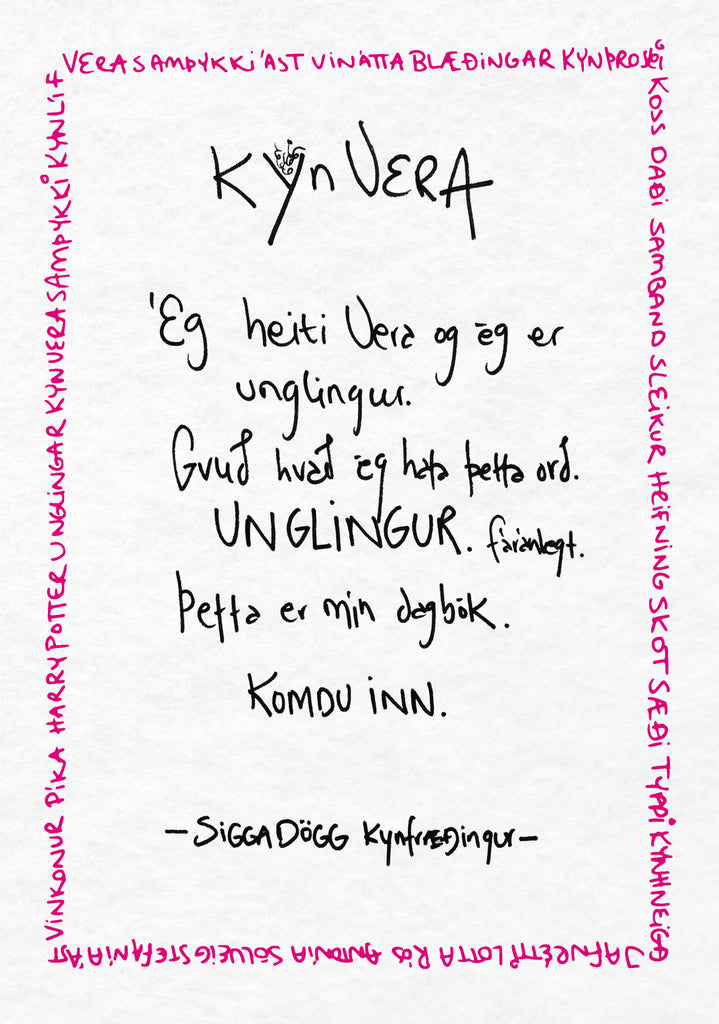 VERA SAMÞYKKI ÁST VINÁTTA BLÆÐINGAR KYNÞROSKI
KOSS DAÐI SAMBAND SLEIKUR HEIFNING SKOT SÆÐI TYPPI KYNHNEIGÐ
JAFNRÉTTI LOTTA RÓS ANTONÍA SÓLVEIG STEFANÍA ÁST
VINKONUR PÍKA HARRY POTTER UNGLINGAR KYNVERA SAMÞYKKI KYNLÍF
KYNVERA
Ég heiti Vera og ég er
unglingur.
Gvuð hvað ég hata þetta orð.
UNGLINGUR. fáránlegt.
Þetta er mín dagbók.
KOMDU INN.
— SIGGA DÖGG kynfræðingur —